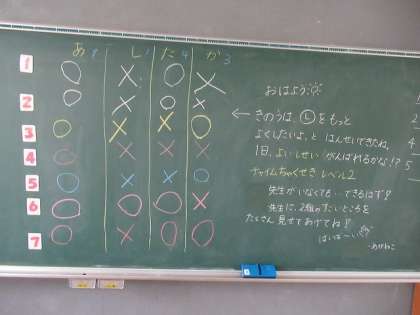 あ し た が
1 ○ × ○ ×
2 ○ × ○ ×
3 ○ × × ○
4 ○ × × ×
5 ○ × × ○
6 ○ ○ ○ ×
7 ○ × ○ ○
おはよう
← きのうは、Ⓛをもっと
よくしたいよ、と はんせいできたね。
1日、よいしせい がんばれるかな!?
チャイムちゃくせき レベル2
先生がいなくても…できるはず!
先生に、2組のすごいところを
たくさん見せてあげてね!
はいは〜い